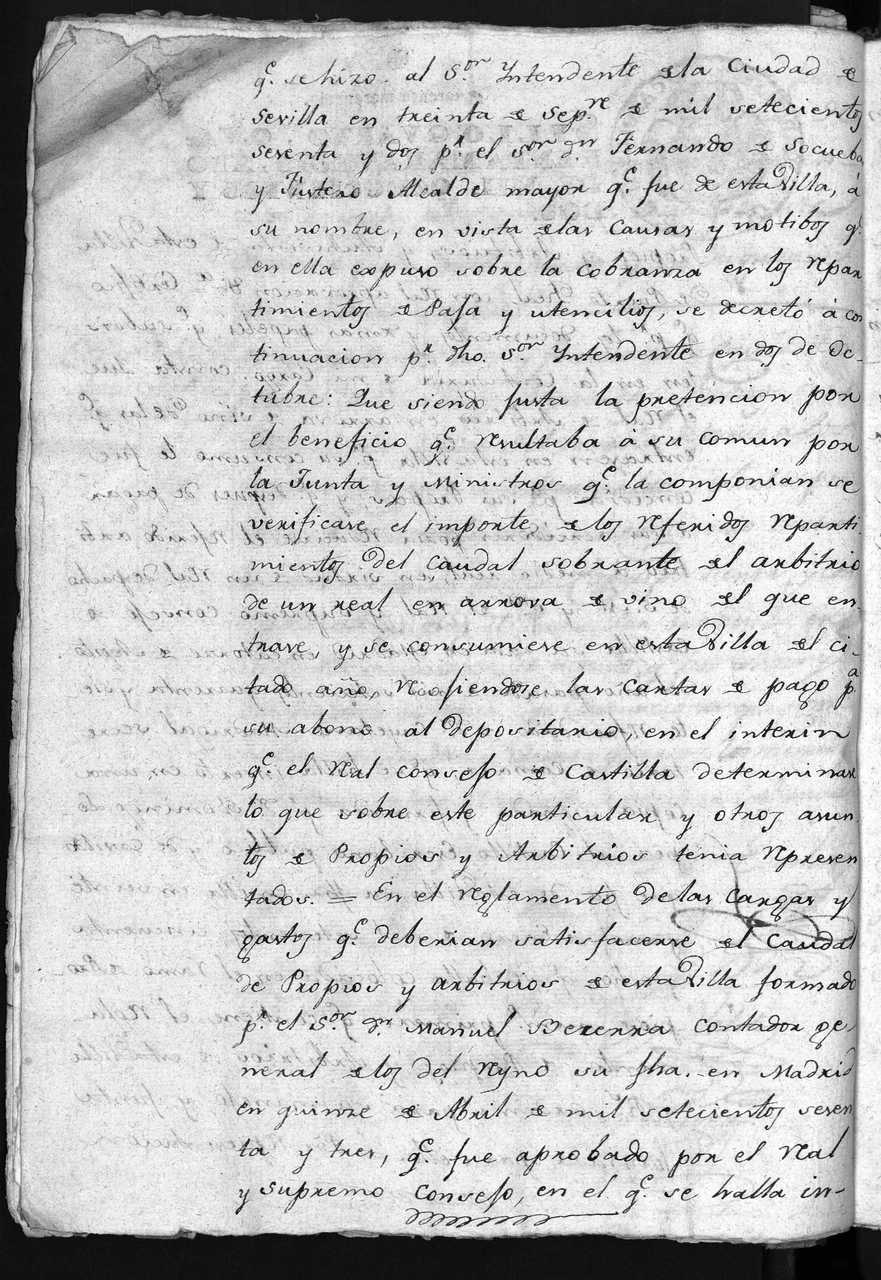 q.e se hizo al S.or Yntendente de la Ciudad de
Sevilla en treinta de Sep.re de mil setecientos
sesenta y dos p.r el s.or d.n Fernando de Socueba
y Fustero Alcalde mayor q.e fue de esta Villa, á
su nombre, en vista de las causas y motibos q.e
en ella expuso sobre la cobranza en los Repar
timientos de Pasa y utencilios, se decretó á con
tinuacion p.r dho. s.or Yntendente en dos de Oc-
tubre: Que siendo justa la pretencion por
el beneficio q.e resultaba á su comun por
la Junta y Ministros q.e la componian se
verificase el importe de los referidos reparti
mientos del caudal sobrante del arbitrio
de un real en arrova de vino del que en
trase, y se consumiese en esta Villa el ci-
tado año, recojiendose las cartas de pago p.a
su abono al Depositario, en el interin
q.e el Real consejo de Castilla determinase
lo que sobre este particular y otros asun
tos de Propios y Arbitrios tenia represen
tados. = En el reglamento de las cargas y
gastos q.e deberian satisfacerse del Caudal
de Propios y arbitrios de esta Villa formado
p.r el S.or d.n Manuel Bezerra contador ge-
neral de los del Reyno su fha. en Madrid
en quinze de Abril de mil setecientos sesen
ta y tres, q.e fue aprobado por el Real
y supremo consejo, en el q.e se halla in-